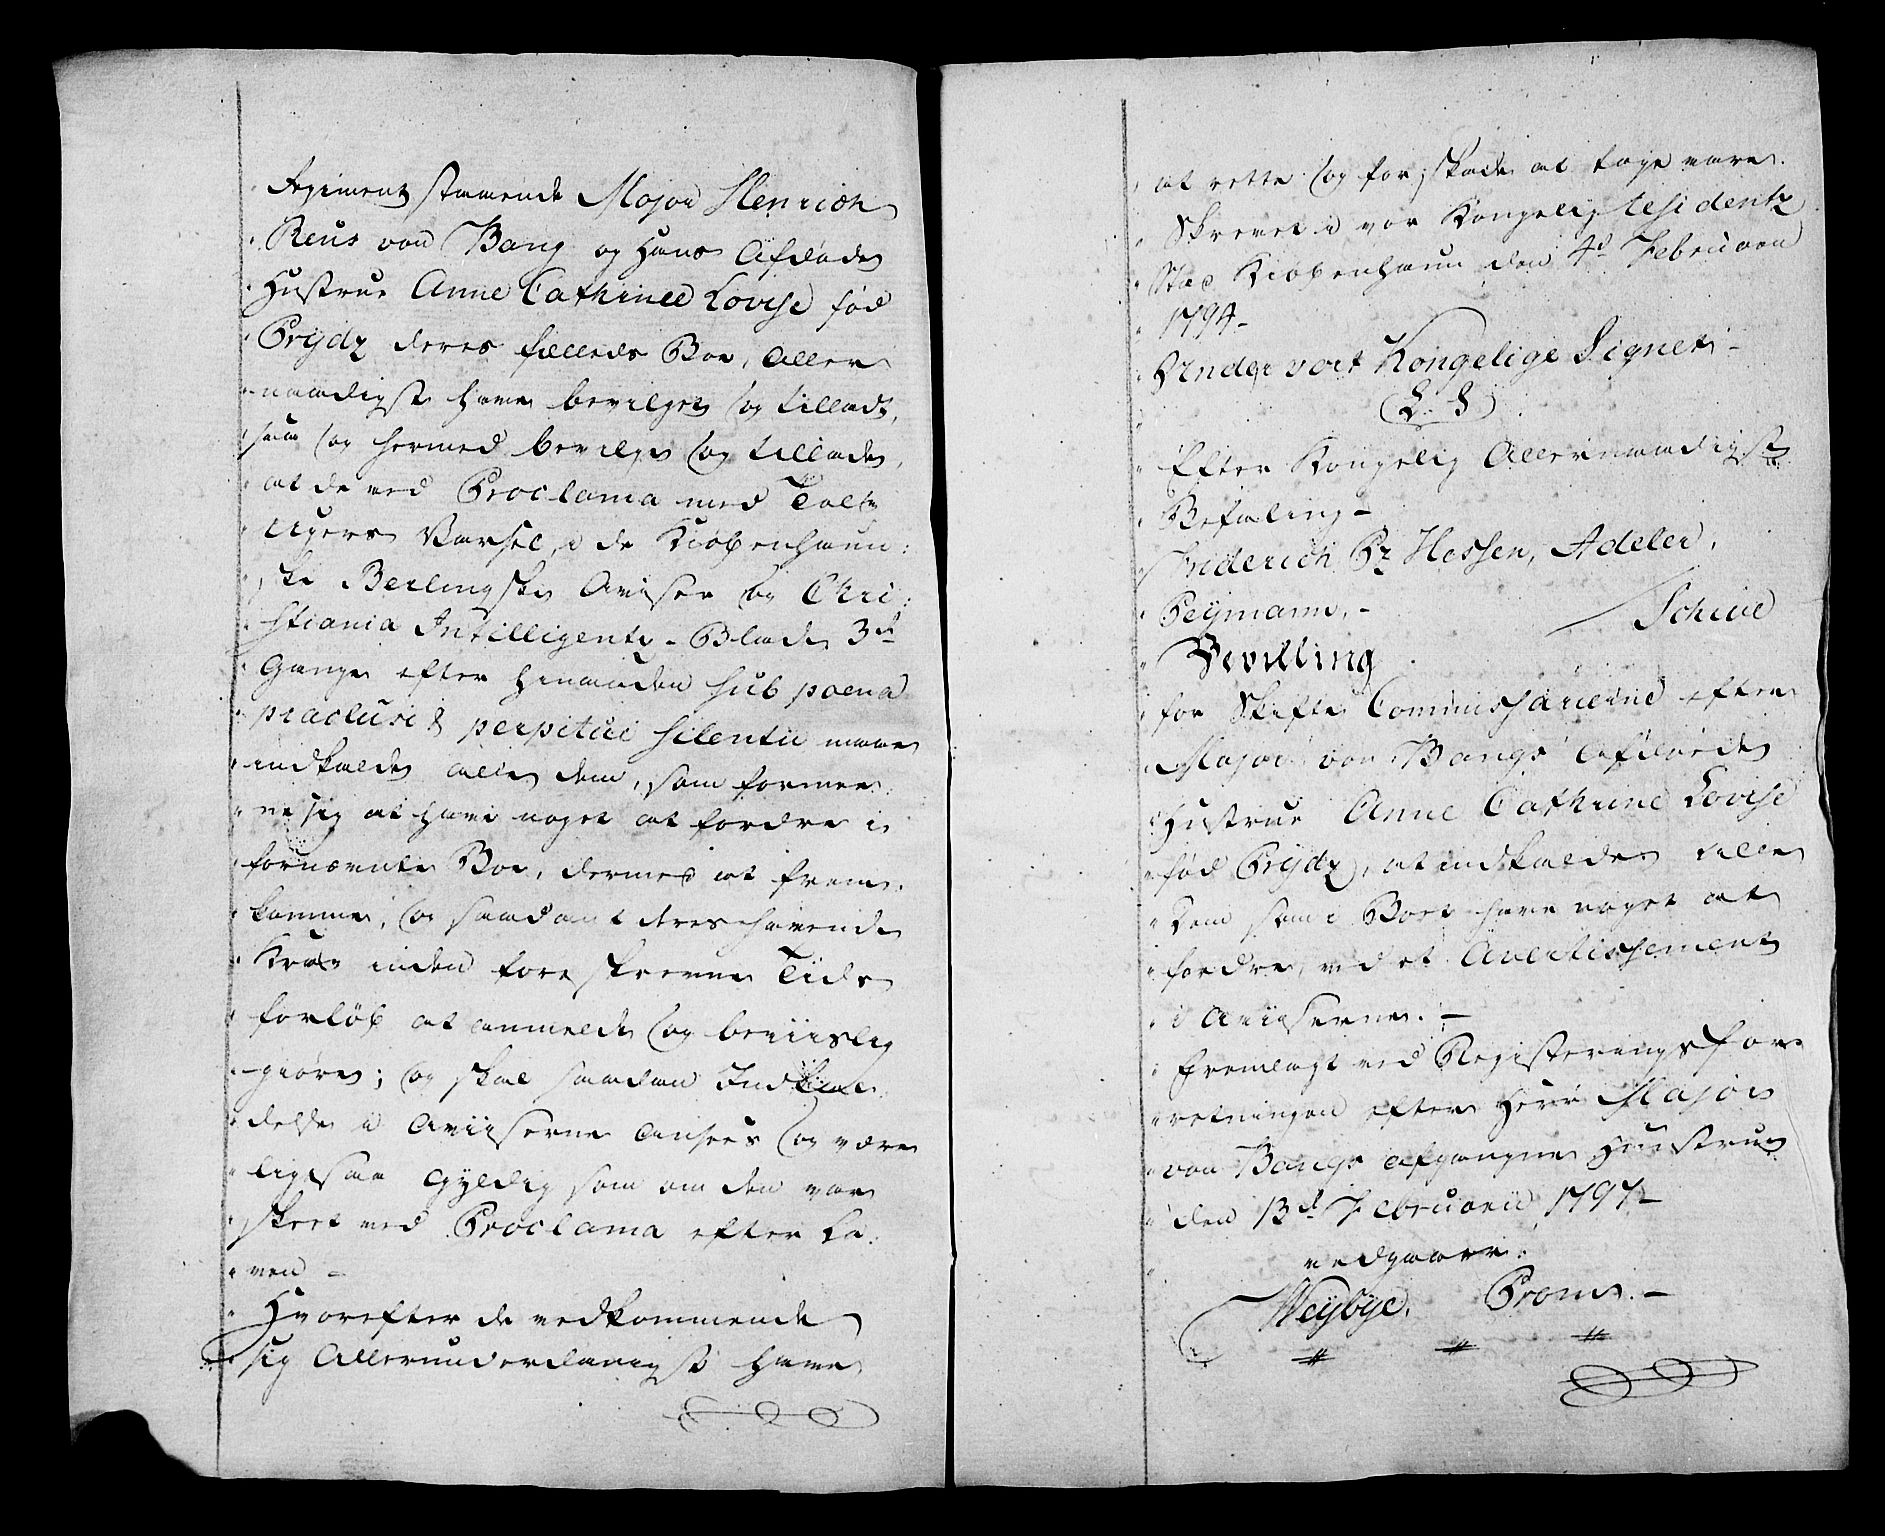 Regiment staaende Major Henrich
Reus von Bang og Hans Afdøde
Hustrue Anne Cathrine Lovise fød
Prÿdz deres fælleds Boe, Aller
naadigst have bevilget og tilladt,
saa og hermed bevilge og tillade,
at de ved Proclama med Tolv
Ugers Varsel, i de Kiøbenhavn:
ske Berlingske Aviser og Chri:
stiania Intelligentz-Blade 3de
Gange efter hinanden sub poena
præclusi & perpetui silentii maae
indkalde alle dem, som formee:
ne sig at have noget at fordre i
fornævnte Boe, dermed at frem:
komme, og saadant deres havende
Krav inden foreskrevne Tids
forløb at anmelde og beviislig
giøre; og skal saadan Indkal:
delse i Aviiserne ansees og være
ligesaa Gyldig som om den var
skeet ved Proclama efter Lo:
ven -
Hvorefter de vedkommende
sig Allerunderdanigst have
at rette og for skade at tage vare.
Skrevet i vor Kongelig Residentz
Stad Kiøbenhavn den 4de Februarii
1794-
Under vort Kongelige Signet -
(L. S)
Efter Kongelig Allernaadigste
Befaling -
Friderich Pz Hessen, Adeler,
Peÿmann, -
Schive
Bevilling
for Skifte Commissarierne efter
Major von Bangs Afdøde
Hustrue Anne Cathrine Lovise
fød Prÿdz, at indkalde alle
dem som i Boet have noget at
fordre, ved et Avertissement
i Aviiserne. -
Fremlagt ved Registeringsfor
retningen efter Herr Major
von Bangs afgangne Hustrue
den 13de Februarii 1797-
vedgaaer.
Weÿbÿe. Prom. -